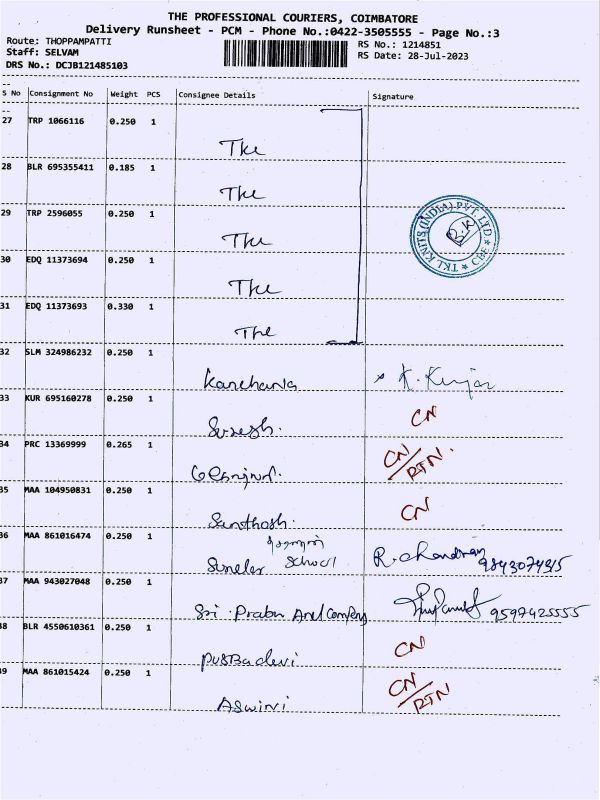 THE PROFESSIONAL COURIERS, COIMBATORE
Delivery Runsheet - PCM - Phone No.:0422-3505555 - Page No.:3
Route: THOPPAMPATTI
Staff: SELVAM
DRS No.: DCJB121485103
RS No.: 1214851
RS Date: 28-Jul-2023
S No Consignment No Weight PCS Consignee Details Signature
27 TRP 1066116 0.250 1
The
28 BLR 695355411 0.185 1
The
29 TRP 2596055 0.250 1
The
TKL KNITS (INDIA) PVT. LTD ★ CBE ★
30 EDQ 11373694 0.250 1
The
31 EDQ 11373693 0.330 1
The
32 SLM 324986232 0.250 1
Kanchana K. Kunjan
33 KUR 695160278 0.250 1
Suresh. CN
34 PRC 13369999 0.265 1
CN/RTN.
35 MAA 104950831 0.250 1
Santhosh. CN
36 MAA 861016474 0.250 1
School R. Chandran
37 MAA 943027048 0.250 1
Sri Prabu And Company 9597425555
38 BLR 4550610361 0.250 1
PUSBadevi CN
39 MAA 861015424 0.250 1
ASwini CN/RTN